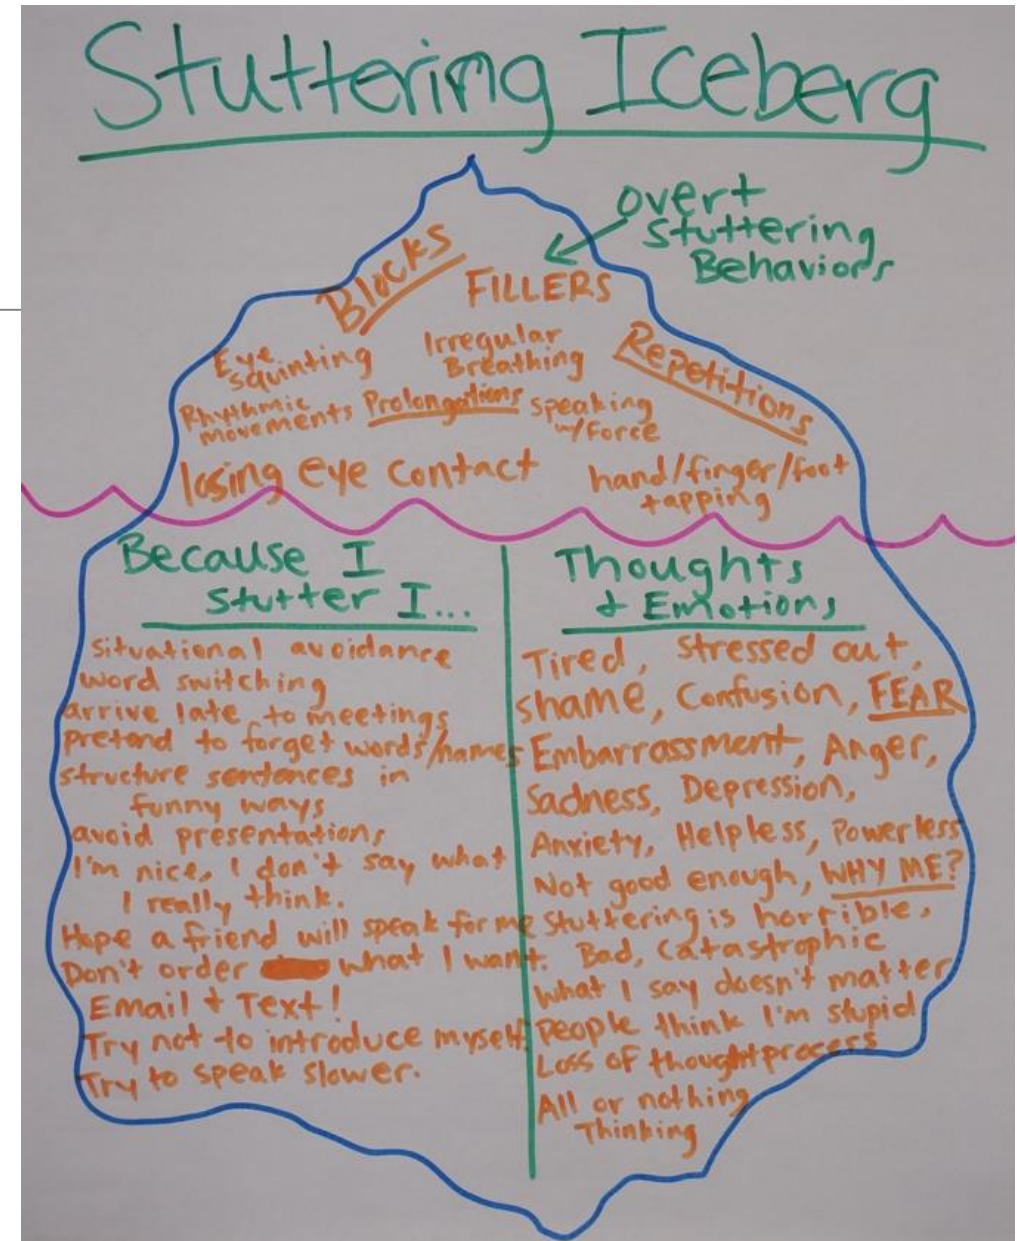 Stuttering Iceberg
overt
Stuttering
Behaviors
Blocks
FILLERS
Eye
squinting
Irregular
Breathing
Repetitions
Rhythmic
movements
Prolongations
speaking
w/Force
losing eye contact
hand/finger/foot
tapping
Because I
stutter I...
situational avoidance
word switching
arrive late to meetings
pretend to forget words/names
structure sentences in
funny ways
avoid presentations
I'm nice, I don't say what
I really think.
Hope a friend will speak for me
Don't order what I want.
Email + Text!
Try not to introduce myself.
Try to speak slower.
Thoughts
+ Emotions
Tired, stressed out,
shame, Confusion, FEAR
Embarrassment, Anger,
Sadness, Depression,
Anxiety, Helpless, Powerless
Not good enough, WHY ME?
Stuttering is horrible,
Bad, Catastrophic
What I say doesn't matter
People think I'm stupid
Loss of thought process
All or nothing
Thinking